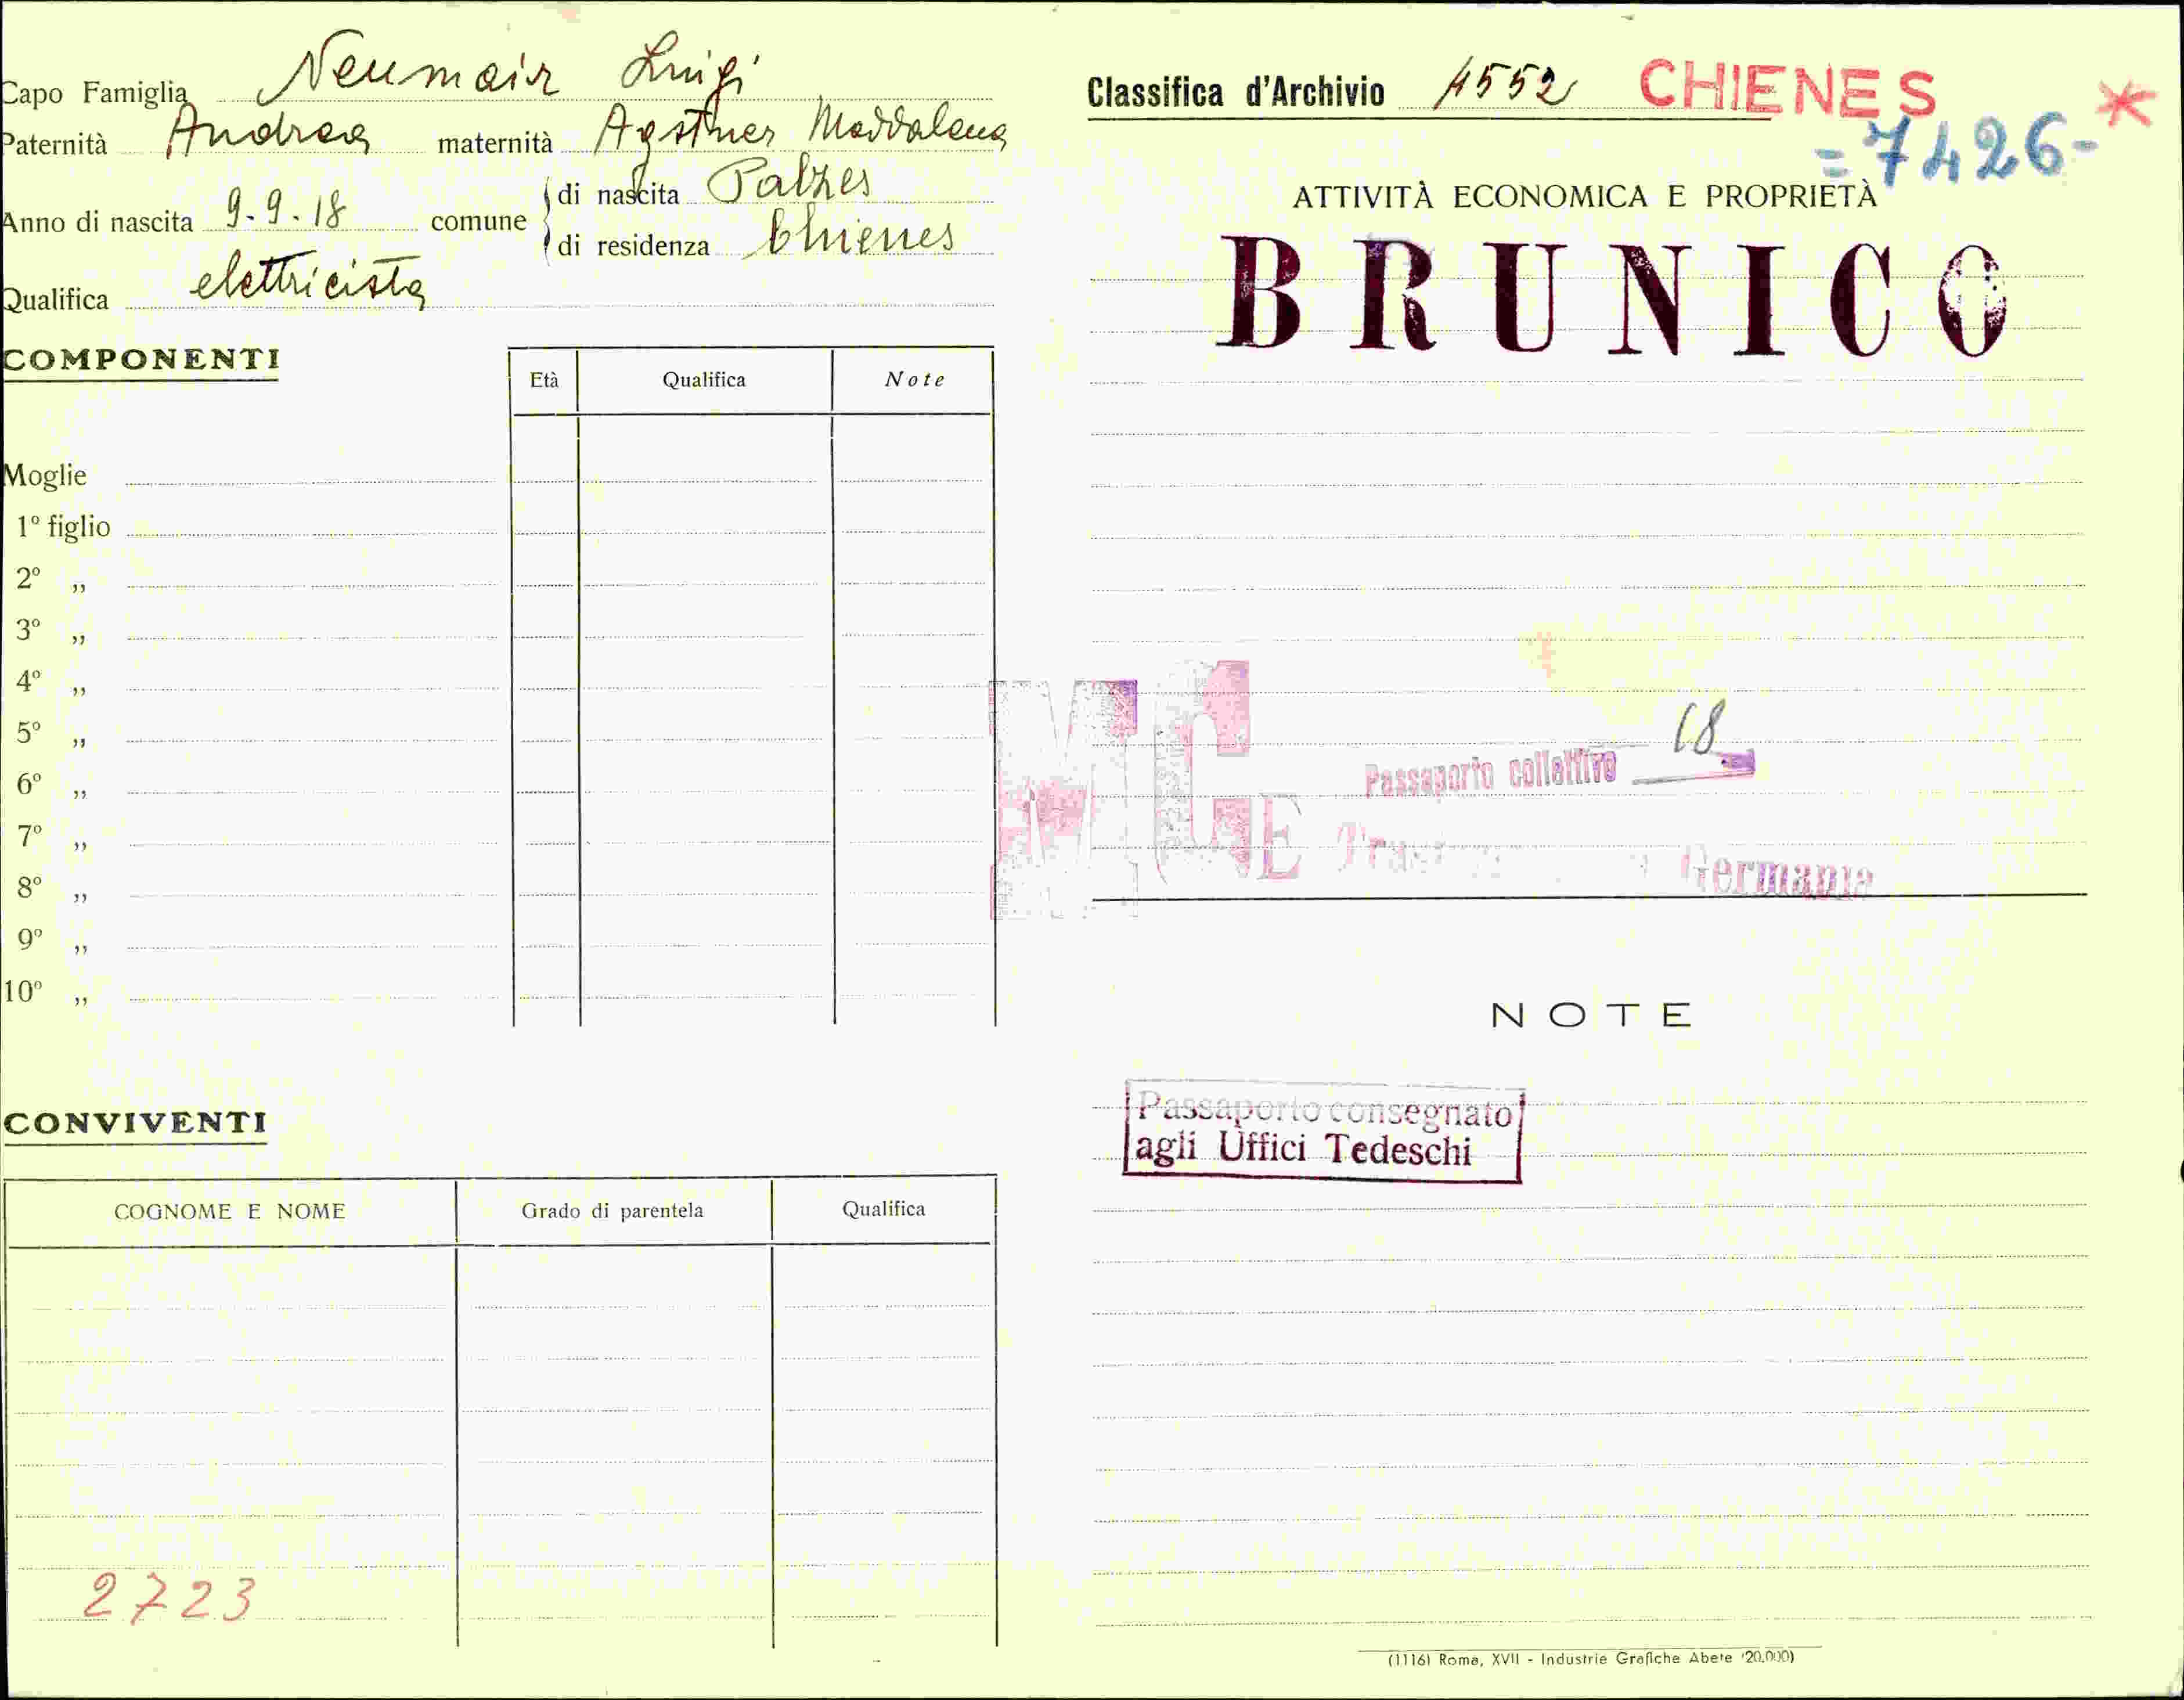 Capo Famiglia Neumair Luigi
Paternità Andrea maternità Agstner Maddalena
Anno di nascita 9.9.18 comune di nascita Palzes
di residenza Chienes
Qualifica elettricista
COMPONENTI
Età Qualifica Note
Moglie
1º figlio
2º „
3º „
4º „
5º „
6º „
7º „
8º „
9º „
10º „
CONVIVENTI
COGNOME E NOME Grado di parentela Qualifica
2723
Classifica d'Archivio 4552 CHIENES *
=7426-
ATTIVITÀ ECONOMICA E PROPRIETÀ
BRUNICO
Passaporto collettivo 18
Germania
NOTE
Passaporto consegnato
agli Uffici Tedeschi
(1116) Roma, XVII - Industrie Grafiche Abete (20.000)